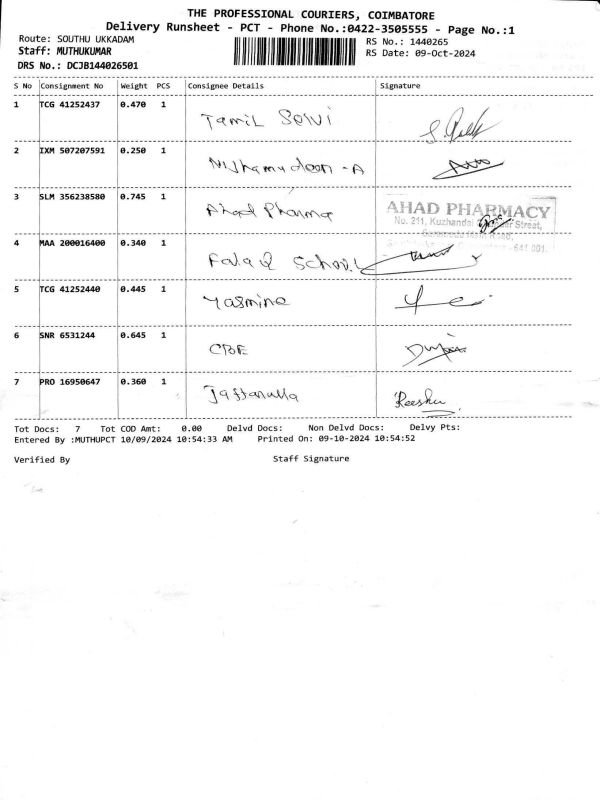 THE PROFESSIONAL COURIERS, COIMBATORE
Delivery Runsheet - PCT - Phone No.:0422-3505555 - Page No.:1
Route: SOUTHU UKKADAM
RS No.: 1440265
Staff: MUTHUKUMAR
RS Date: 09-Oct-2024
DRS No.: DCJB144026501
S No Consignment No Weight PCS Consignee Details Signature
1 TCG 41252437 0.470 1 Tamil Selvi
2 IXM 507207591 0.250 1
3 SLM 356238580 0.745 1 Ahad Pharma
AHAD PHARMACY
No. 211, Kuzhandai Street,
641 001.
4 MAA 200016400 0.340 1 Falaq School
5 TCG 41252440 0.445 1 Yasmine
6 SNR 6531244 0.645 1
7 PRO 16950647 0.360 1 Jaffarulla
Tot Docs: 7 Tot COD Amt: 0.00 Delvd Docs: Non Delvd Docs: Delvy Pts:
Entered By :MUTHUPCT 10/09/2024 10:54:33 AM Printed On: 09-10-2024 10:54:52
Verified By Staff Signature